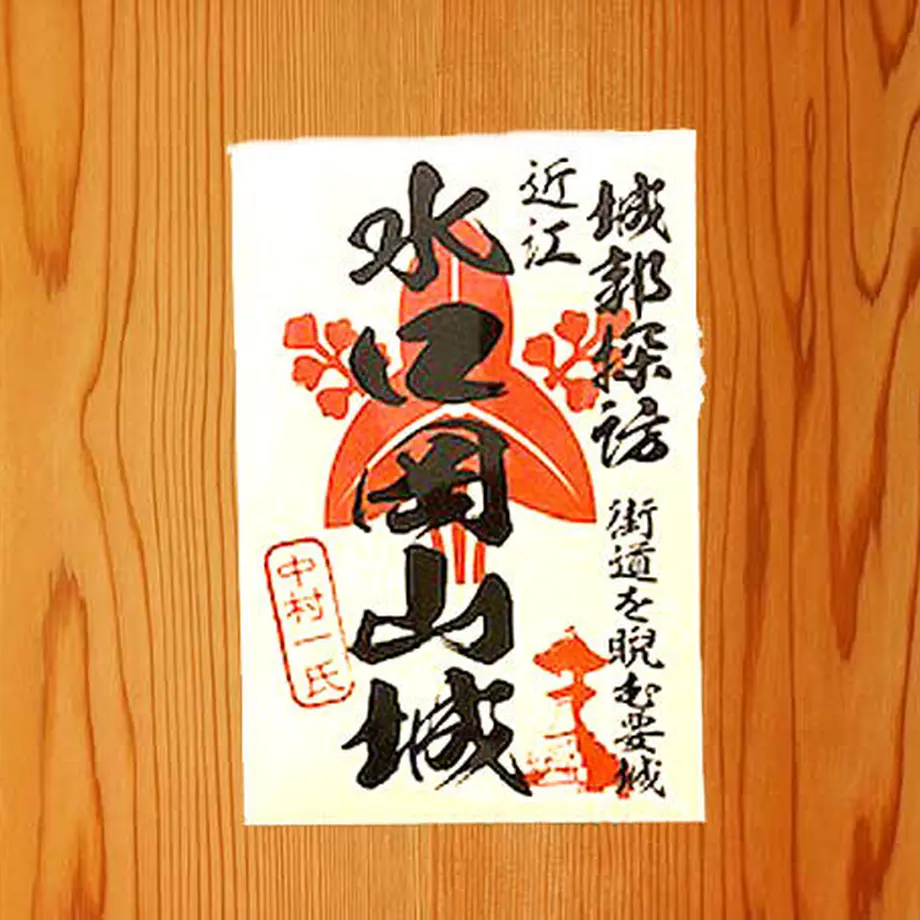 城郭探訪
街道を睨む要城
近江
水口岡山城
中村一氏